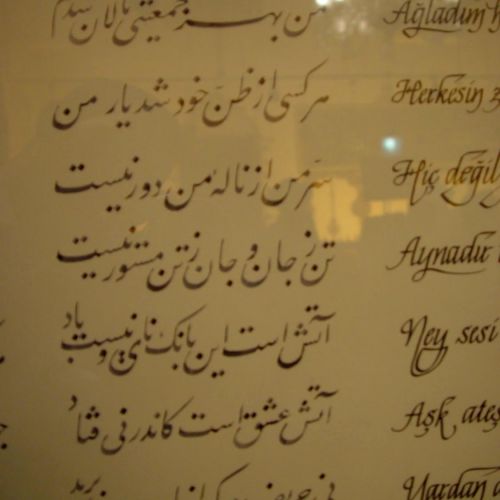 من بهر جمعیتی نالان شدم
هر کسی از ظنّ خود شد یار من
سرّ من از نالهٔ من دور نیست
تن ز جان و جان ز تن مستور نیست
آتش است این بانگ نای و نیست باد
آتش عشق است کاندر نی فتاد
نی حریف برید
Ağladım
Herkesin
Hiç değil
Aynadır
Ney sesi
Aşk ateş
Yardan